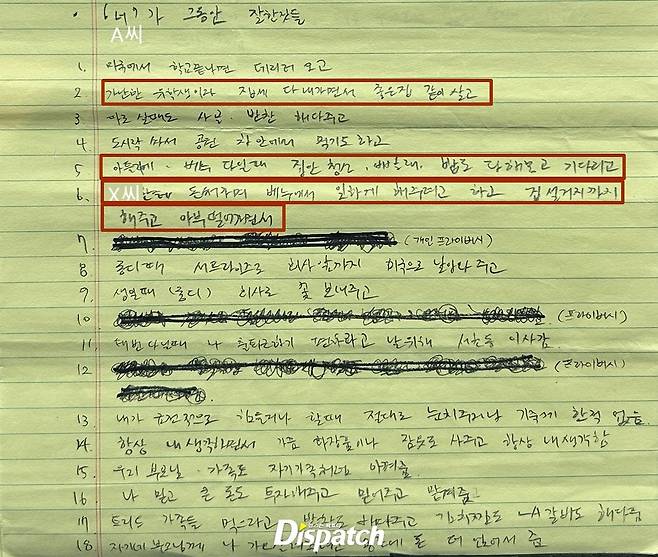 · 가 그동안 잘한것들
A씨
1. 미국에서 학교끝나면 데리러 오고
2 가난한 유학생이라 집세 다 내가면서 좋은집 같이 살고
3 따로 살때도 사골 반찬 해다주고
4 도시락 싸서 공원 차 안에서 먹기도 하고
5 다닐때 집안 청소, 빨래, 밥도 다해놓고 기다리고
6. X씨한테 돈써가며 에서 일하게 해주려고 하고 집 설거지까지
해주고 아부 떨어가면서
7. (개인 프라이버시)
8 때 서프라이즈로 회사 앞까지 미국으로 날아와 주고
9. 생일때 회사로 꽃 보내주고
10 (프라이버시)
11 다닐때 나 출퇴근하기 편하라고 날위해 이사감
12 (프라이버시)
13 내가 금전적으로 힘들거나 할때 절대로 눈치주거나 기죽게 한적 없음
14. 항상 내생각하면서 가끔 화장품이나 사주고 항상 내생각함
15. 우리 부모님 · 가족도 자기가족처럼 아껴줌
16 나 믿고 큰 돈도 투자해주고 믿어주고 맡겨줌
17 가족들 먹으라고 해다주고 김치찜도 LA갈비도 해다줌
18 나
Dispatch